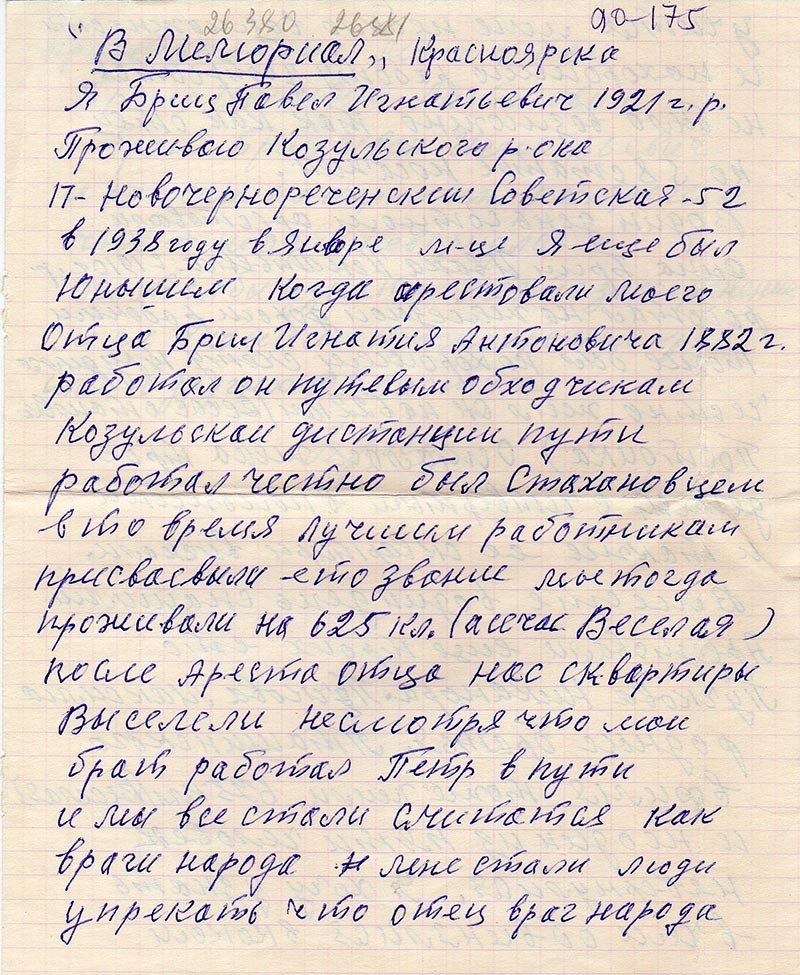 26380 26381 90-175
"В Мемориал„ Красноярска
Я Брищ Павел Игнатьевич 1921 г. р.
Проживаю Козульского р-она
п- Новочернореченский Советская-52
в 1938 году в Январе м-це я еще был
Юнышим когда арестовали моего
Отца Брищ Игнатия Антоновича 1882 г.
работал он путевым обходчикам
Козульской дистанции пути
работал честно был Стахановцем
в то время лучшим работникам
присваевыли ето звание мы тогда
проживали на 625 кл. ( Веселая)
после Ареста отца нас сквартиры
Выселели несмотря что мои
брат работал Петр в пути
и мы все стали считатся как
враги народа и мне стали люди
упрекать что отец враг народа